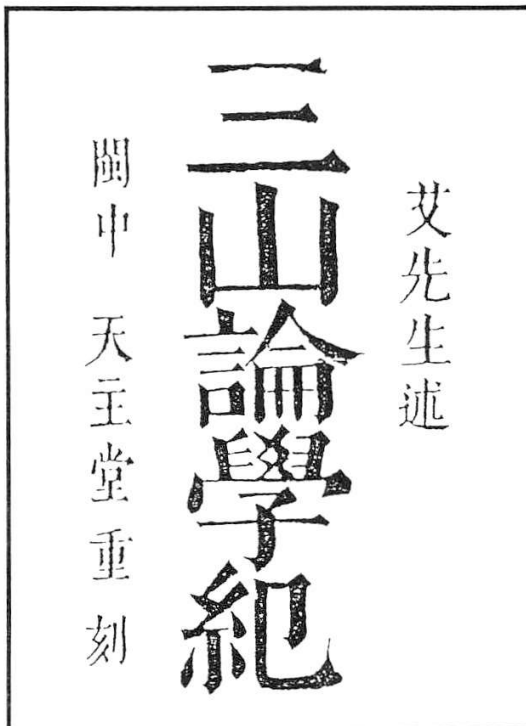 艾先生述
三山論學紀
閩中 天主堂重刻